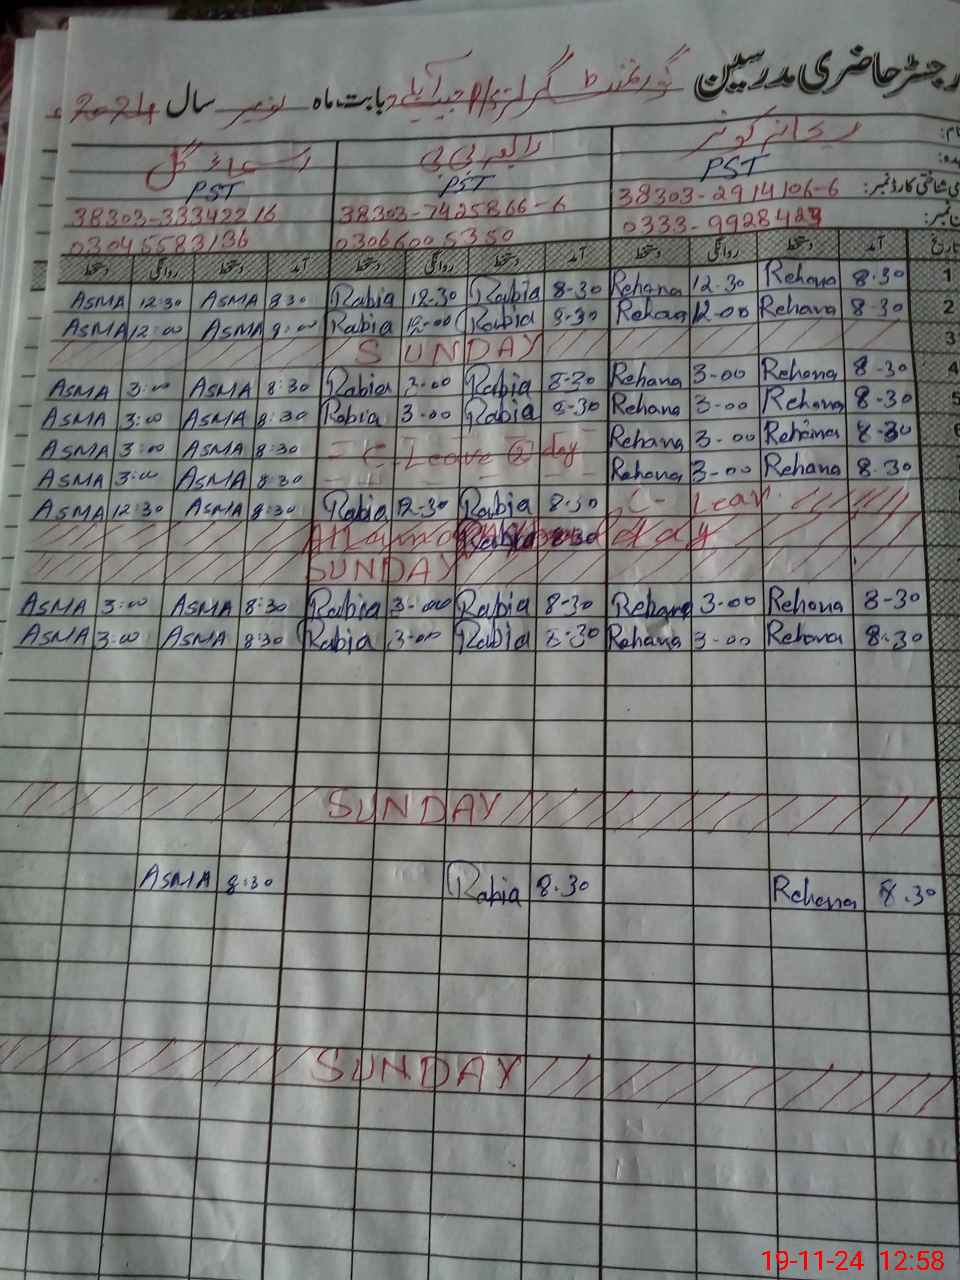 رجسٹر حاضری مدرسین گورنمنٹ گرلز بابت ماہ نومبر سال 2024
نام: ریحانہ کوثر رابعہ بی بی اسماء گل
عہدہ: PST PST PST
شناختی کارڈ نمبر: 38303-2914106-6 38303-7425866-6 38303-33342216
فون نمبر: 0333-9928423 03066005350 03045583136
تاریخ آمد دستخط روانگی دستخط آمد دستخط روانگی دستخط آمد دستخط روانگی دستخط
ASMA 12:30 ASMA 8:30 Rabia 12-30 Rabia 8-30 Rehana 12.30 Rehana 8.30 1
ASMA 12:00 ASMA 8:00 Rabia 12-00 Rabia 8-30 Rehana 12.00 Rehana 8.30 2
SUNDAY 3
ASMA 3:00 ASMA 8:30 Rabia 3-00 Rabia 8-30 Rehana 3-00 Rehana 8-30 4
ASMA 3:00 ASMA 8:30 Rabia 3-00 Rabia 8-30 Rehana 3-00 Rehana 8-30 5
ASMA 3:00 ASMA 8:30 - C - Leave 2 day Rehana 3-00 Rehana 8-30 6
ASMA 3:00 ASMA 8:30 Rehana 3-00 Rehana 8.30
ASMA 12:30 ASMA 8:30 Rabia 12-30 Rabia 8-30 C - Leav
Rabia 8-30 day
SUNDAY
ASMA 3:00 ASMA 8:30 Rabia 3-00 Rabia 8-30 Rehana 3-00 Rehana 8-30
ASMA 3:00 ASMA 8:30 Rabia 3-00 Rabia 8-30 Rehana 3-00 Rehana 8.30
SUNDAY
ASMA 8:30 Rabia 8.30 Rehana 8.30
SUNDAY
19-11-24 12:58